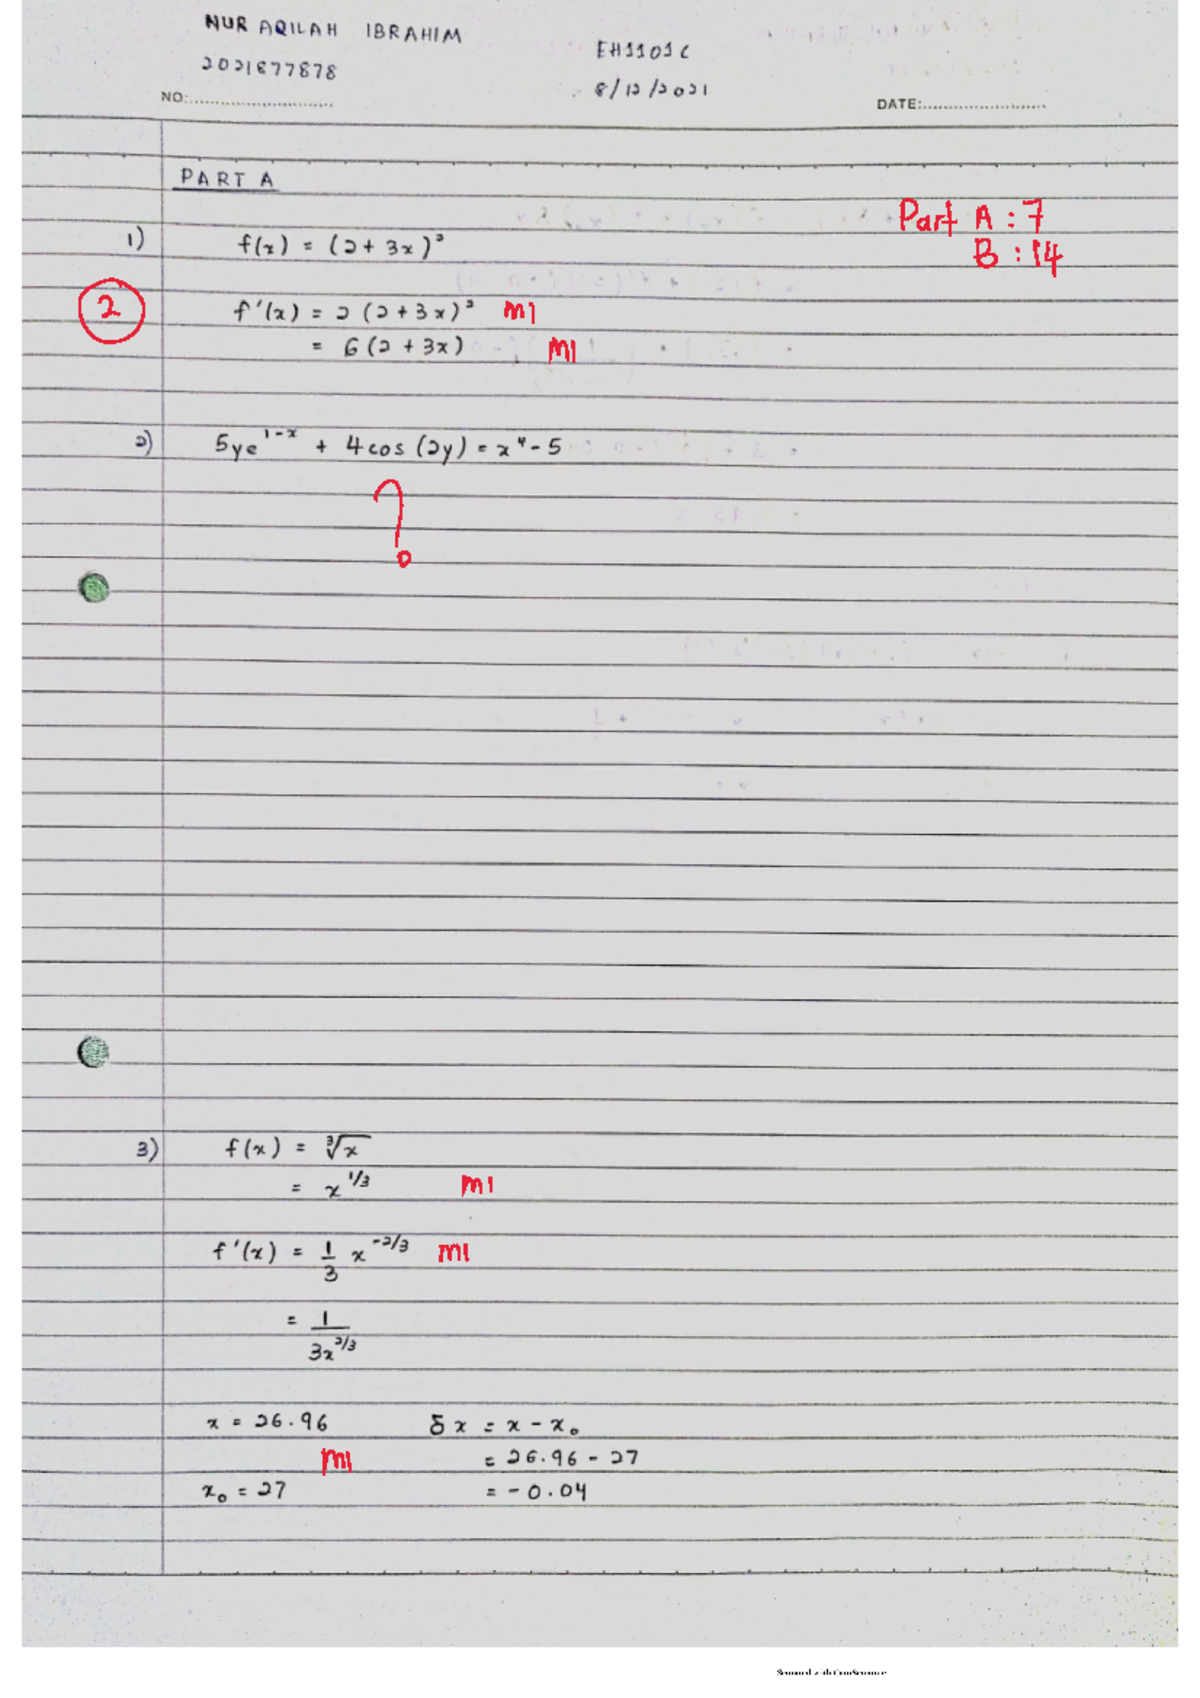 NUR AQILAH IBRAHIM
EH1101C
2021877878
8/12/2021
NO:
DATE:
PART A
Part A : 7
B : 14
1) f(x) = (2 + 3x)²
2 f'(x) = 2 (2 + 3x)² M1
= 6 (2 + 3x) M1
2) 5ye^{1-x} + 4 cos (2y) = x⁴ - 5
?
3) f(x) = ∛x
= x^{1/3} M1
f'(x) = 1/3 x^{-2/3} M1
= 1/3x^{2/3}
x = 26.96 δx = x - x₀
M1 = 26.96 - 27
x₀ = 27 = - 0.04